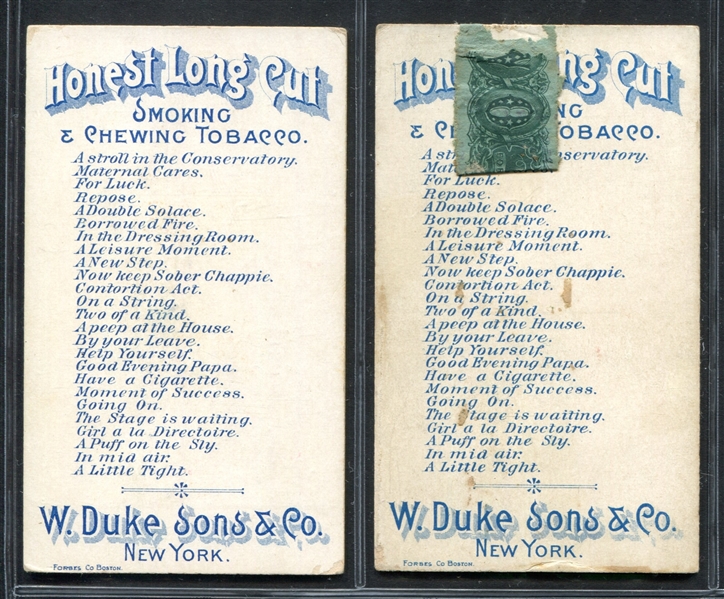 Honest Long Cut
Smoking
& Chewing Tobacco.
A stroll in the Conservatory.
Maternal Cares.
For Luck.
Repose.
A Double Solace.
Borrowed Fire.
In the Dressing Room.
A Leisure Moment.
A New Step.
Now keep Sober Chappie.
Contortion Act.
On a String.
Two of a Kind.
A peep at the House.
By your Leave.
Help Yourself.
Good Evening Papa.
Have a Cigarette.
Moment of Success.
Going On.
The Stage is waiting.
Girl a la Directoire.
A Puff on the Sly.
In mid air.
A Little Tight.
W. Duke Sons & Co.
New York.
Forbes Co Boston.
Hon ng Cut
NG
& C obacco.
A st servatory.
Mat
For Luck.
Repose.
A Double Solace.
Borrowed Fire.
In the Dressing Room.
A Leisure Moment.
A New Step.
Now keep Sober Chappie.
Contortion Act.
On a String.
Two of a Kind.
A peep at the House.
By your Leave.
Help Yourself.
Good Evening Papa.
Have a Cigarette.
Moment of Success.
Going On.
The Stage is waiting.
Girl a la Directoire.
A Puff on the Sly.
In mid air.
A Little Tight.
W. Duke Sons & Co.
New York.
Forbes Co Boston.